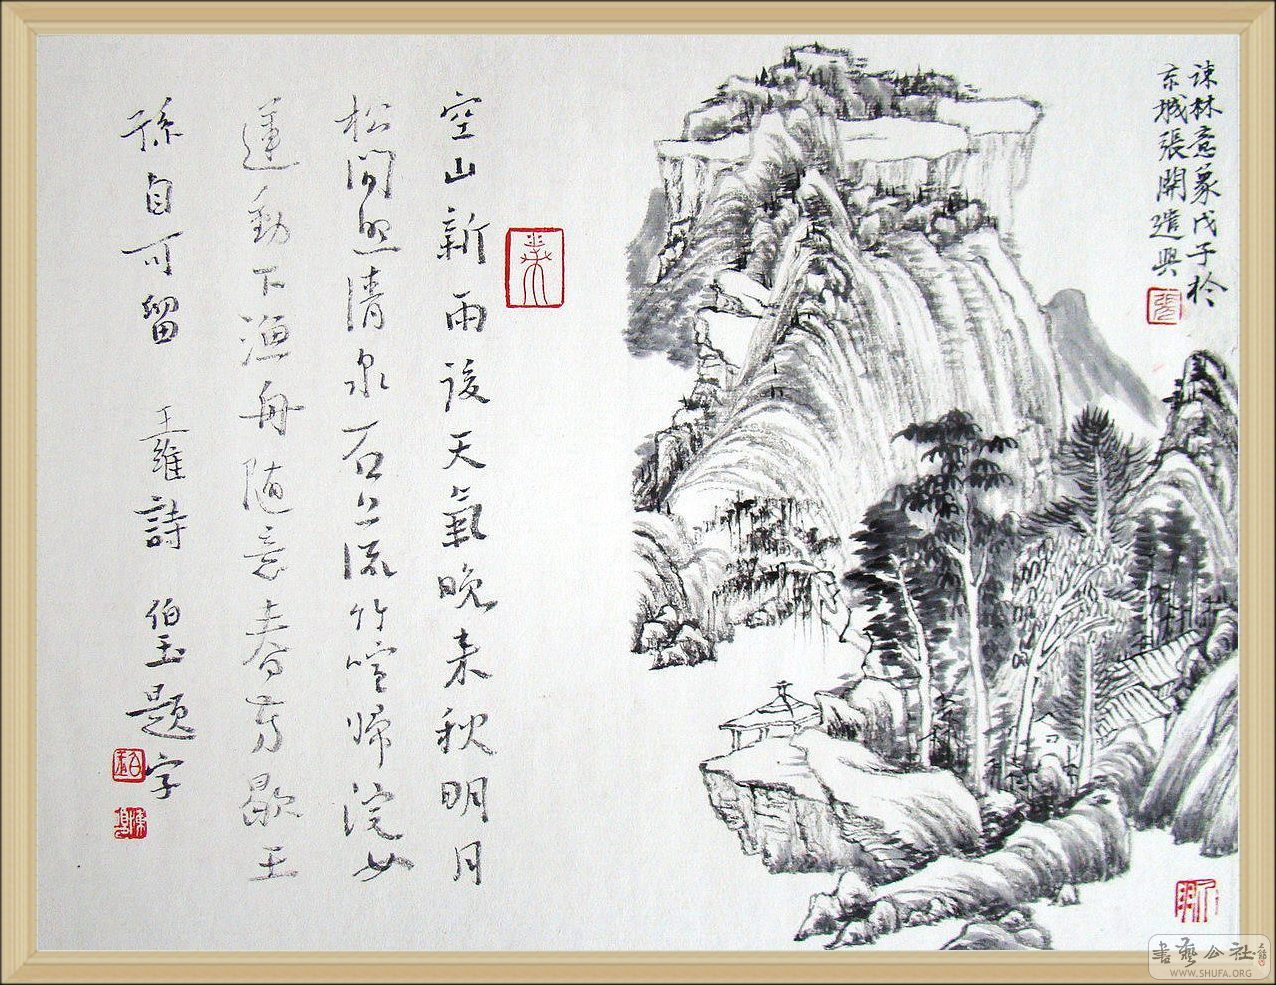 疎林意象戊子於
京城張開遣興
空山新雨後天氣晚来秋明月
松間照清泉石上流竹喧歸浣女
蓮動下漁舟随意春芳歇王
孫自可留 王維詩 伯玉題字
書藝公社
WWW.SHUFA.ORG